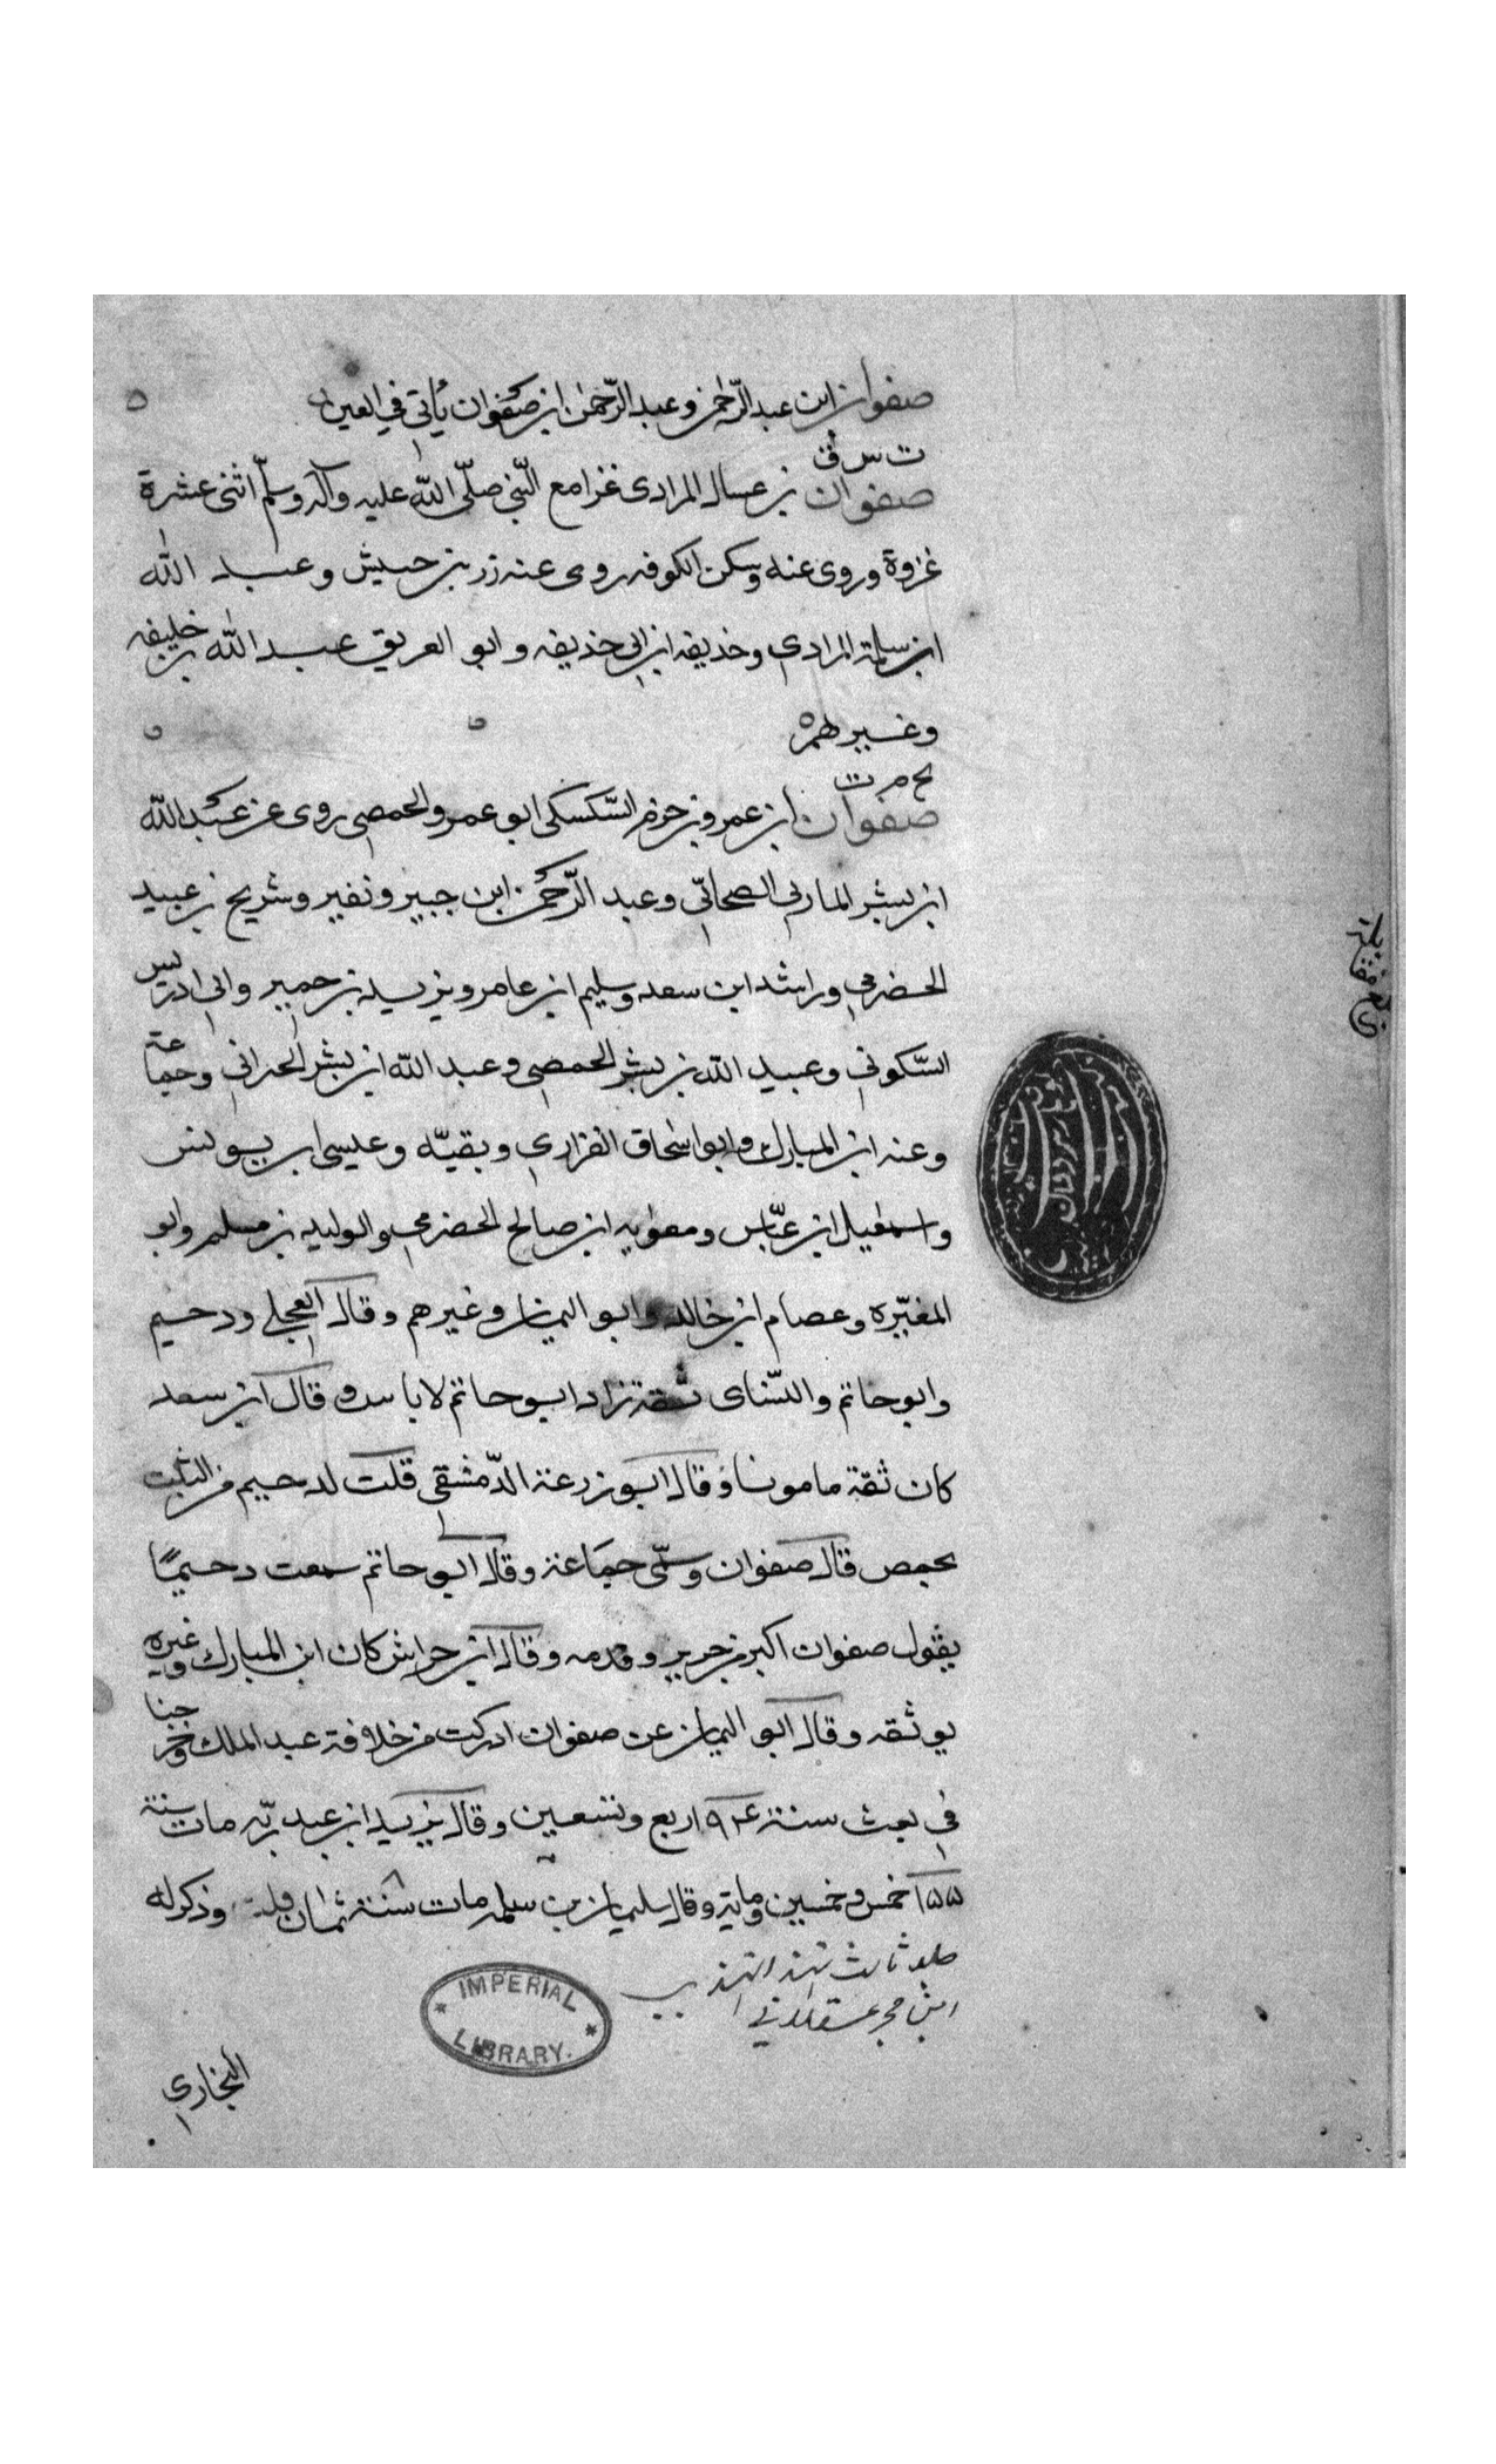 صفوان ابن عبد الرّحمٰن وعبد الرّحمٰن ابن صفوان يأتي في العين
ت س ق
صفوان بن عسال المرادى غزا مع النّبي صلّى اللّه عليه وآله وسلّم اثنى عشرة
غزوة وروى عنه وسكن الكوفه روى عنه زر بن حبيش وعبد اللّه
ابن سلمة المرادي وحذيفه ابن ابي حذيفه وابو العريق عبد اللّه بن خليفه
وغيرهم
بخ م ت
صفوان ابن عمرو بن حرم السّكسكى ابو عمرو الحمصي روى عن عبد اللّه
ابن بشر المازلي الصحابيّ وعبد الرّحمٰن ابن جبير ونفير وشريح بن عبيد
الحضرمي وراشد ابن سعد وسليم ابن عامر ويزيد بن حمير وابي ادريس
السّكوني وعبيد اللّه بن بشر الحمصي وعبد اللّه ابن بشر الحراني وجماعة
وعنه ابن المبارك وابو اسحاق الفزاري وبقيّه وعيسى ابن يونس
واسمعيل ابن عيّاس ومعويه ابن صالح الحضرمي والوليد بن مسلم وابو
المغيّره وعصام ابن خالد وابو اليمان وغيرهم وقال العجلي ودحيم
وابو حاتم والنّساى ثقة زاد ابو حاتم لا باس به وقال ابن سعد
كان ثقة مامونا وقال ابو زرعة الدّمشقي قلت لدحيم من الثبت
بحمص قال صفوان وسمّى جماعة وقال ابو حاتم سمعت دحيمًا
يقول صفوان اكبر من حرير وقدمه وقال ابن خراش كان ابن المبارك وغيره
يوثقه وقال ابو اليمان عن صفوان ادركت من خلافة عبد الملك وخرجنا
في بعث سنة ٩٤ اربع وتسعين وقال يزيد ابن عبد ربّه مات سنة
١٥٥ خمس وخمسين وماية وقال سليمان بن سلمه مات سنة ثمان قلت وذكر له
جلد ثالث تهذيب التهذيب
ابن حجر عسقلاني
IMPERIAL
LIBRARY.
البخاري